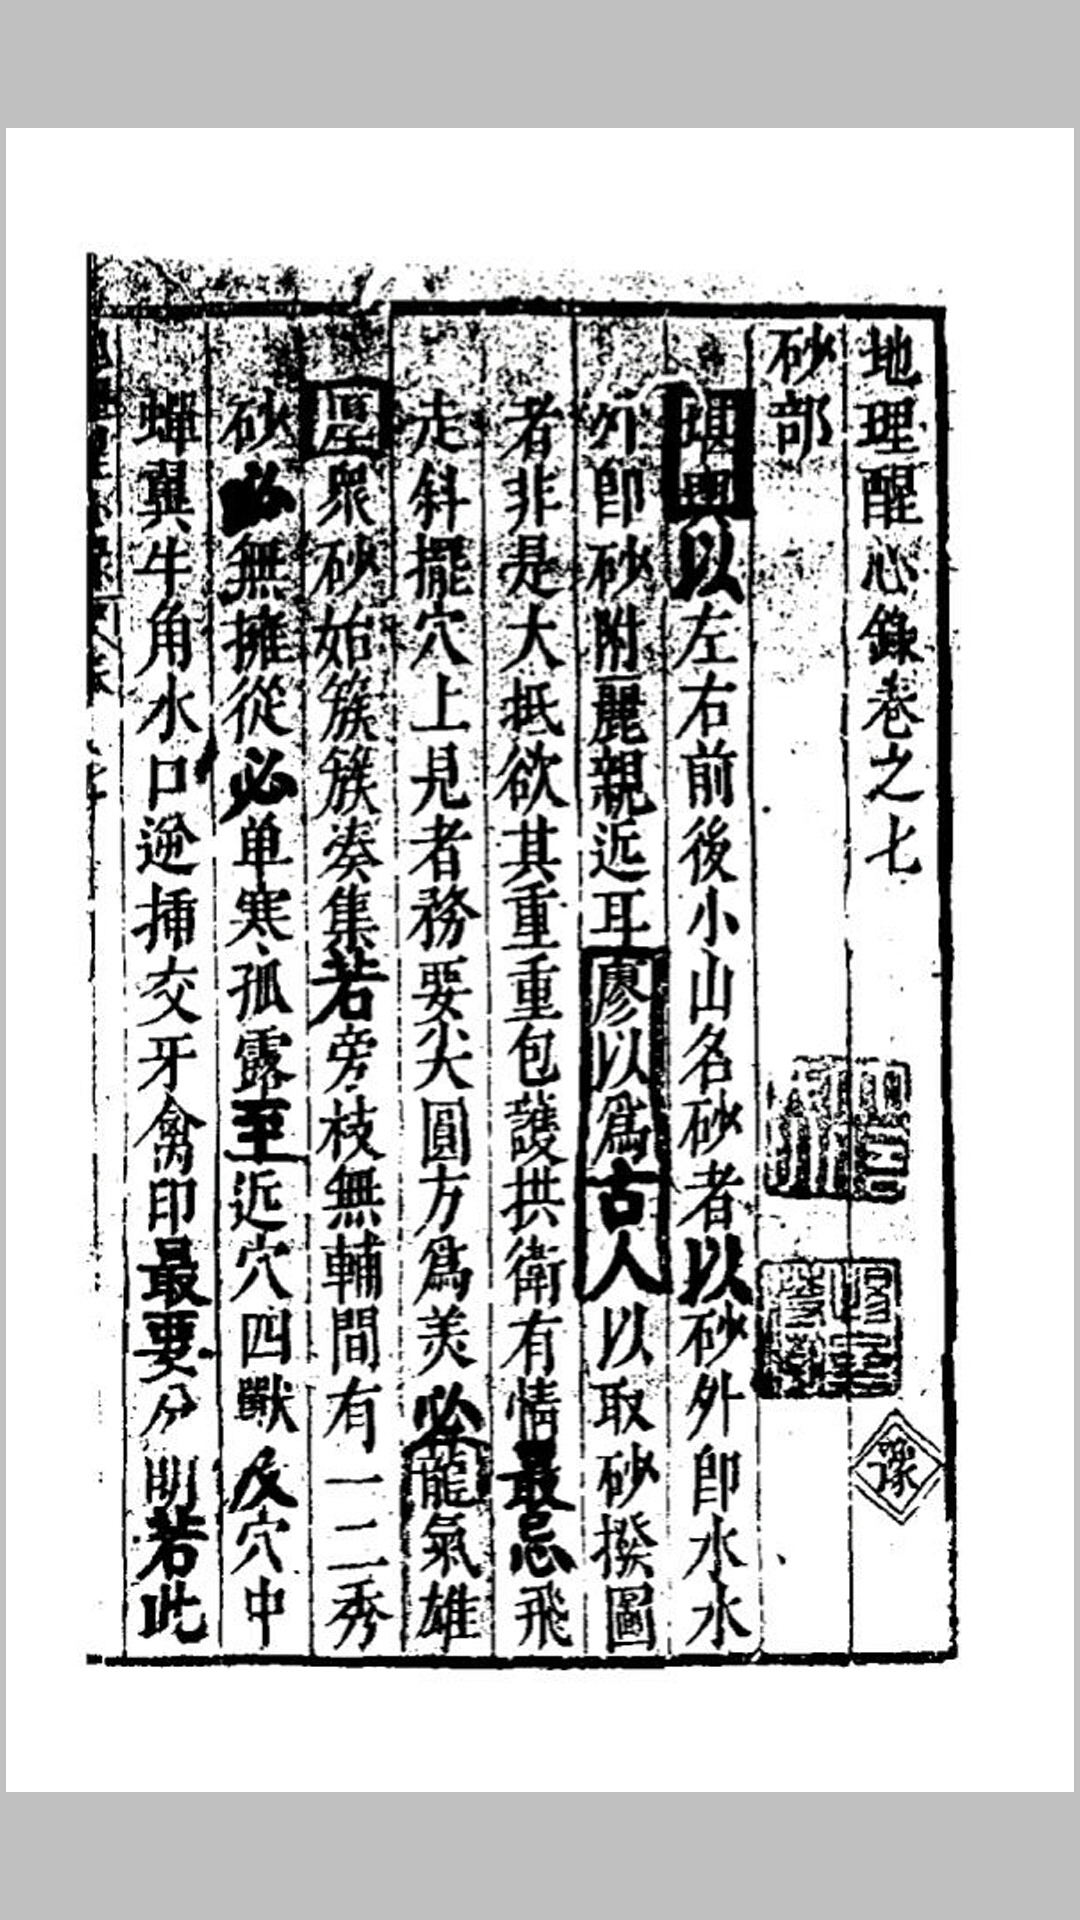 地理醒心錄卷之七
砂部
堪輿以左右前後小山名砂者以砂外即水水
外即砂附麗親近耳廖以爲古人以取砂撥圖
者非是大抵欲其重重包護拱衛有情最忌飛
走斜擺穴上見者務要尖圓方爲美必龍氣雄
壓衆砂始簇簇湊集若旁枝無輔間有一二秀
砂必無擁從必单寒孤露至近穴四獸及穴中
蟬翼牛角水口逆揷交牙禽印最要分明若此